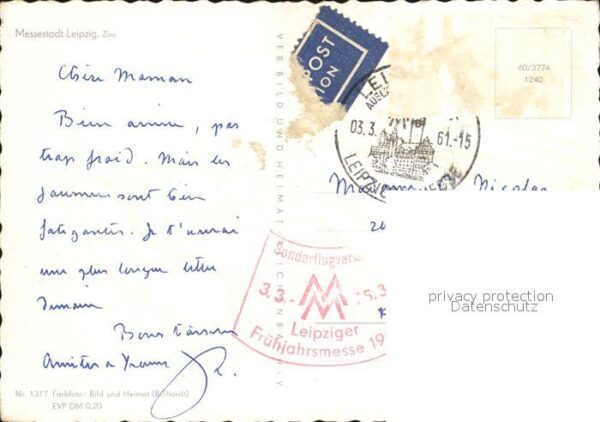 Messestadt Leipzig, Zoo
Chère Maman
Bien arrivé, pas
trop froid. Mais les
journées sont bien
fatigantes. Je t'écrirai
une plus longue lettre
demain
Bons baisers
Amitiés à Yvonne
R.
Nr. 1317 Farbfoto: Bild und Heimat (Billhardt)
EVP DM 0,20
VEB BILD UND HEIMAT REICHENBACH
POST
ION
60/3774
1240
LEI
03.3. 61.-15
LEIPZIG
Madame Nicolas
20
Sonderflugver
3.3.- 15.3
Leipziger
Frühjahrsmesse 19
privacy protection
Datenschutz